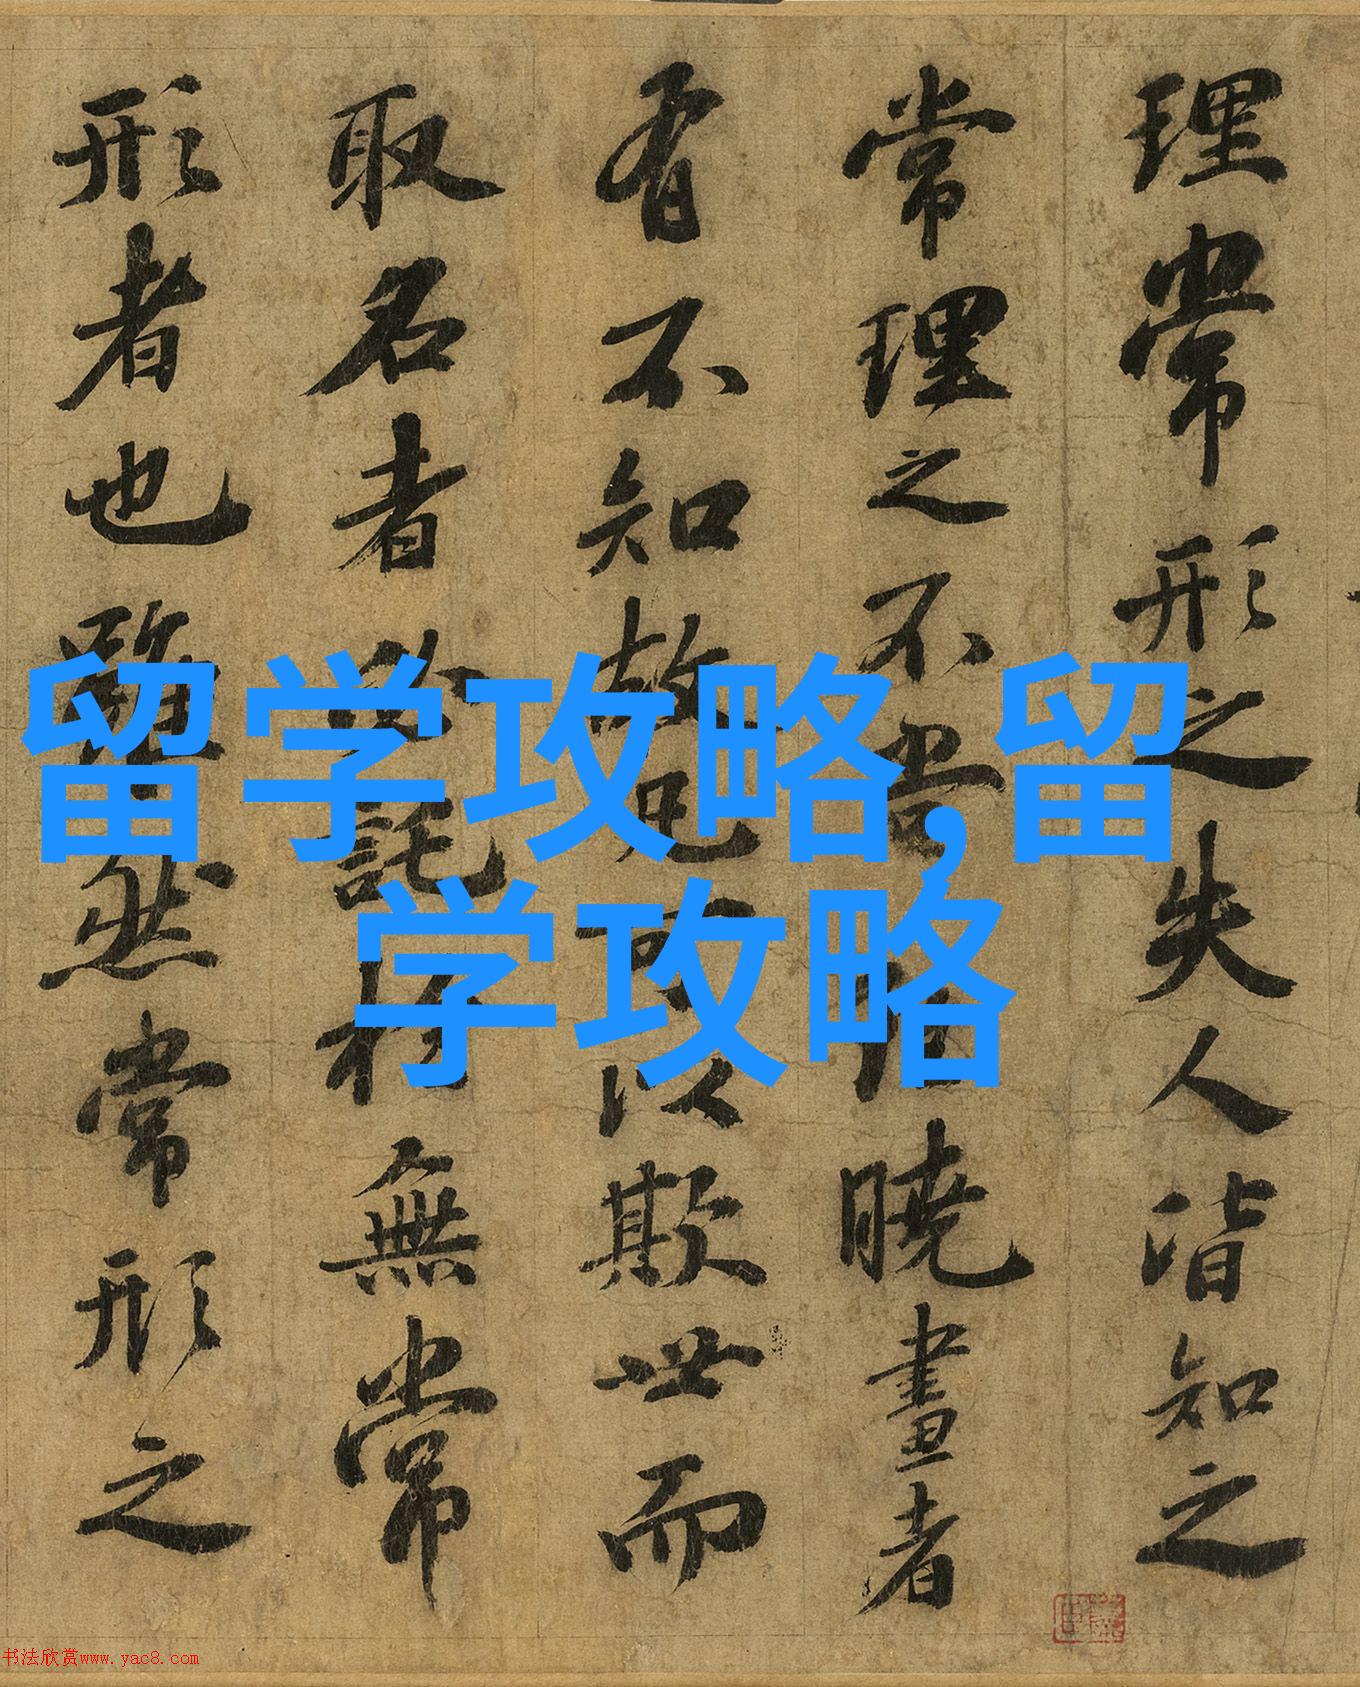 理常形之失人皆知之
常理之不當曉畫者
有不知故凡可以欺世而
取名者必託於無常
形者也雖然常形之
留学攻略,留
学攻略
书法欣赏www.yac8.com